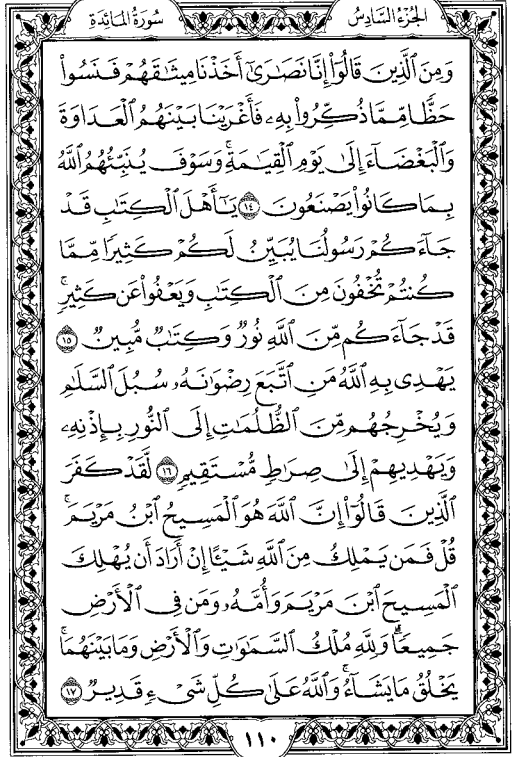 الجزء السادس
سورة المائدة
وَمِنَ ٱلَّذِينَ قَالُوٓا۟ إِنَّا نَصَٰرَىٰٓ أَخَذْنَا مِيثَٰقَهُمْ فَنَسُوا۟
حَظًّا مِّمَّا ذُكِّرُوا۟ بِهِۦ فَأَغْرَيْنَا بَيْنَهُمُ ٱلْعَدَاوَةَ
وَٱلْبَغْضَآءَ إِلَىٰ يَوْمِ ٱلْقِيَٰمَةِ ۚ وَسَوْفَ يُنَبِّئُهُمُ ٱللَّهُ
بِمَا كَانُوا۟ يَصْنَعُونَ ١٤ يَٰٓأَهْلَ ٱلْكِتَٰبِ قَدْ
جَآءَكُمْ رَسُولُنَا يُبَيِّنُ لَكُمْ كَثِيرًا مِّمَّا
كُنتُمْ تُخْفُونَ مِنَ ٱلْكِتَٰبِ وَيَعْفُوا۟ عَن كَثِيرٍ ۚ
قَدْ جَآءَكُم مِّنَ ٱللَّهِ نُورٌ وَكِتَٰبٌ مُّبِينٌ ١٥
يَهْدِى بِهِ ٱللَّهُ مَنِ ٱتَّبَعَ رِضْوَٰنَهُۥ سُبُلَ ٱلسَّلَٰمِ
وَيُخْرِجُهُم مِّنَ ٱلظُّلُمَٰتِ إِلَى ٱلنُّورِ بِإِذْنِهِۦ
وَيَهْدِيهِمْ إِلَىٰ صِرَٰطٍ مُّسْتَقِيمٍ ١٦ لَّقَدْ كَفَرَ
ٱلَّذِينَ قَالُوٓا۟ إِنَّ ٱللَّهَ هُوَ ٱلْمَسِيحُ ٱبْنُ مَرْيَمَ ۚ
قُلْ فَمَن يَمْلِكُ مِنَ ٱللَّهِ شَيْـًٔا إِنْ أَرَادَ أَن يُهْلِكَ
ٱلْمَسِيحَ ٱبْنَ مَرْيَمَ وَأُمَّهُۥ وَمَن فِى ٱلْأَرْضِ
جَمِيعًا ۗ وَلِلَّهِ مُلْكُ ٱلسَّمَٰوَٰتِ وَٱلْأَرْضِ وَمَا بَيْنَهُمَا ۚ
يَخْلُقُ مَا يَشَآءُ ۚ وَٱللَّهُ عَلَىٰ كُلِّ شَىْءٍ قَدِيرٌ ١٧
١١٠